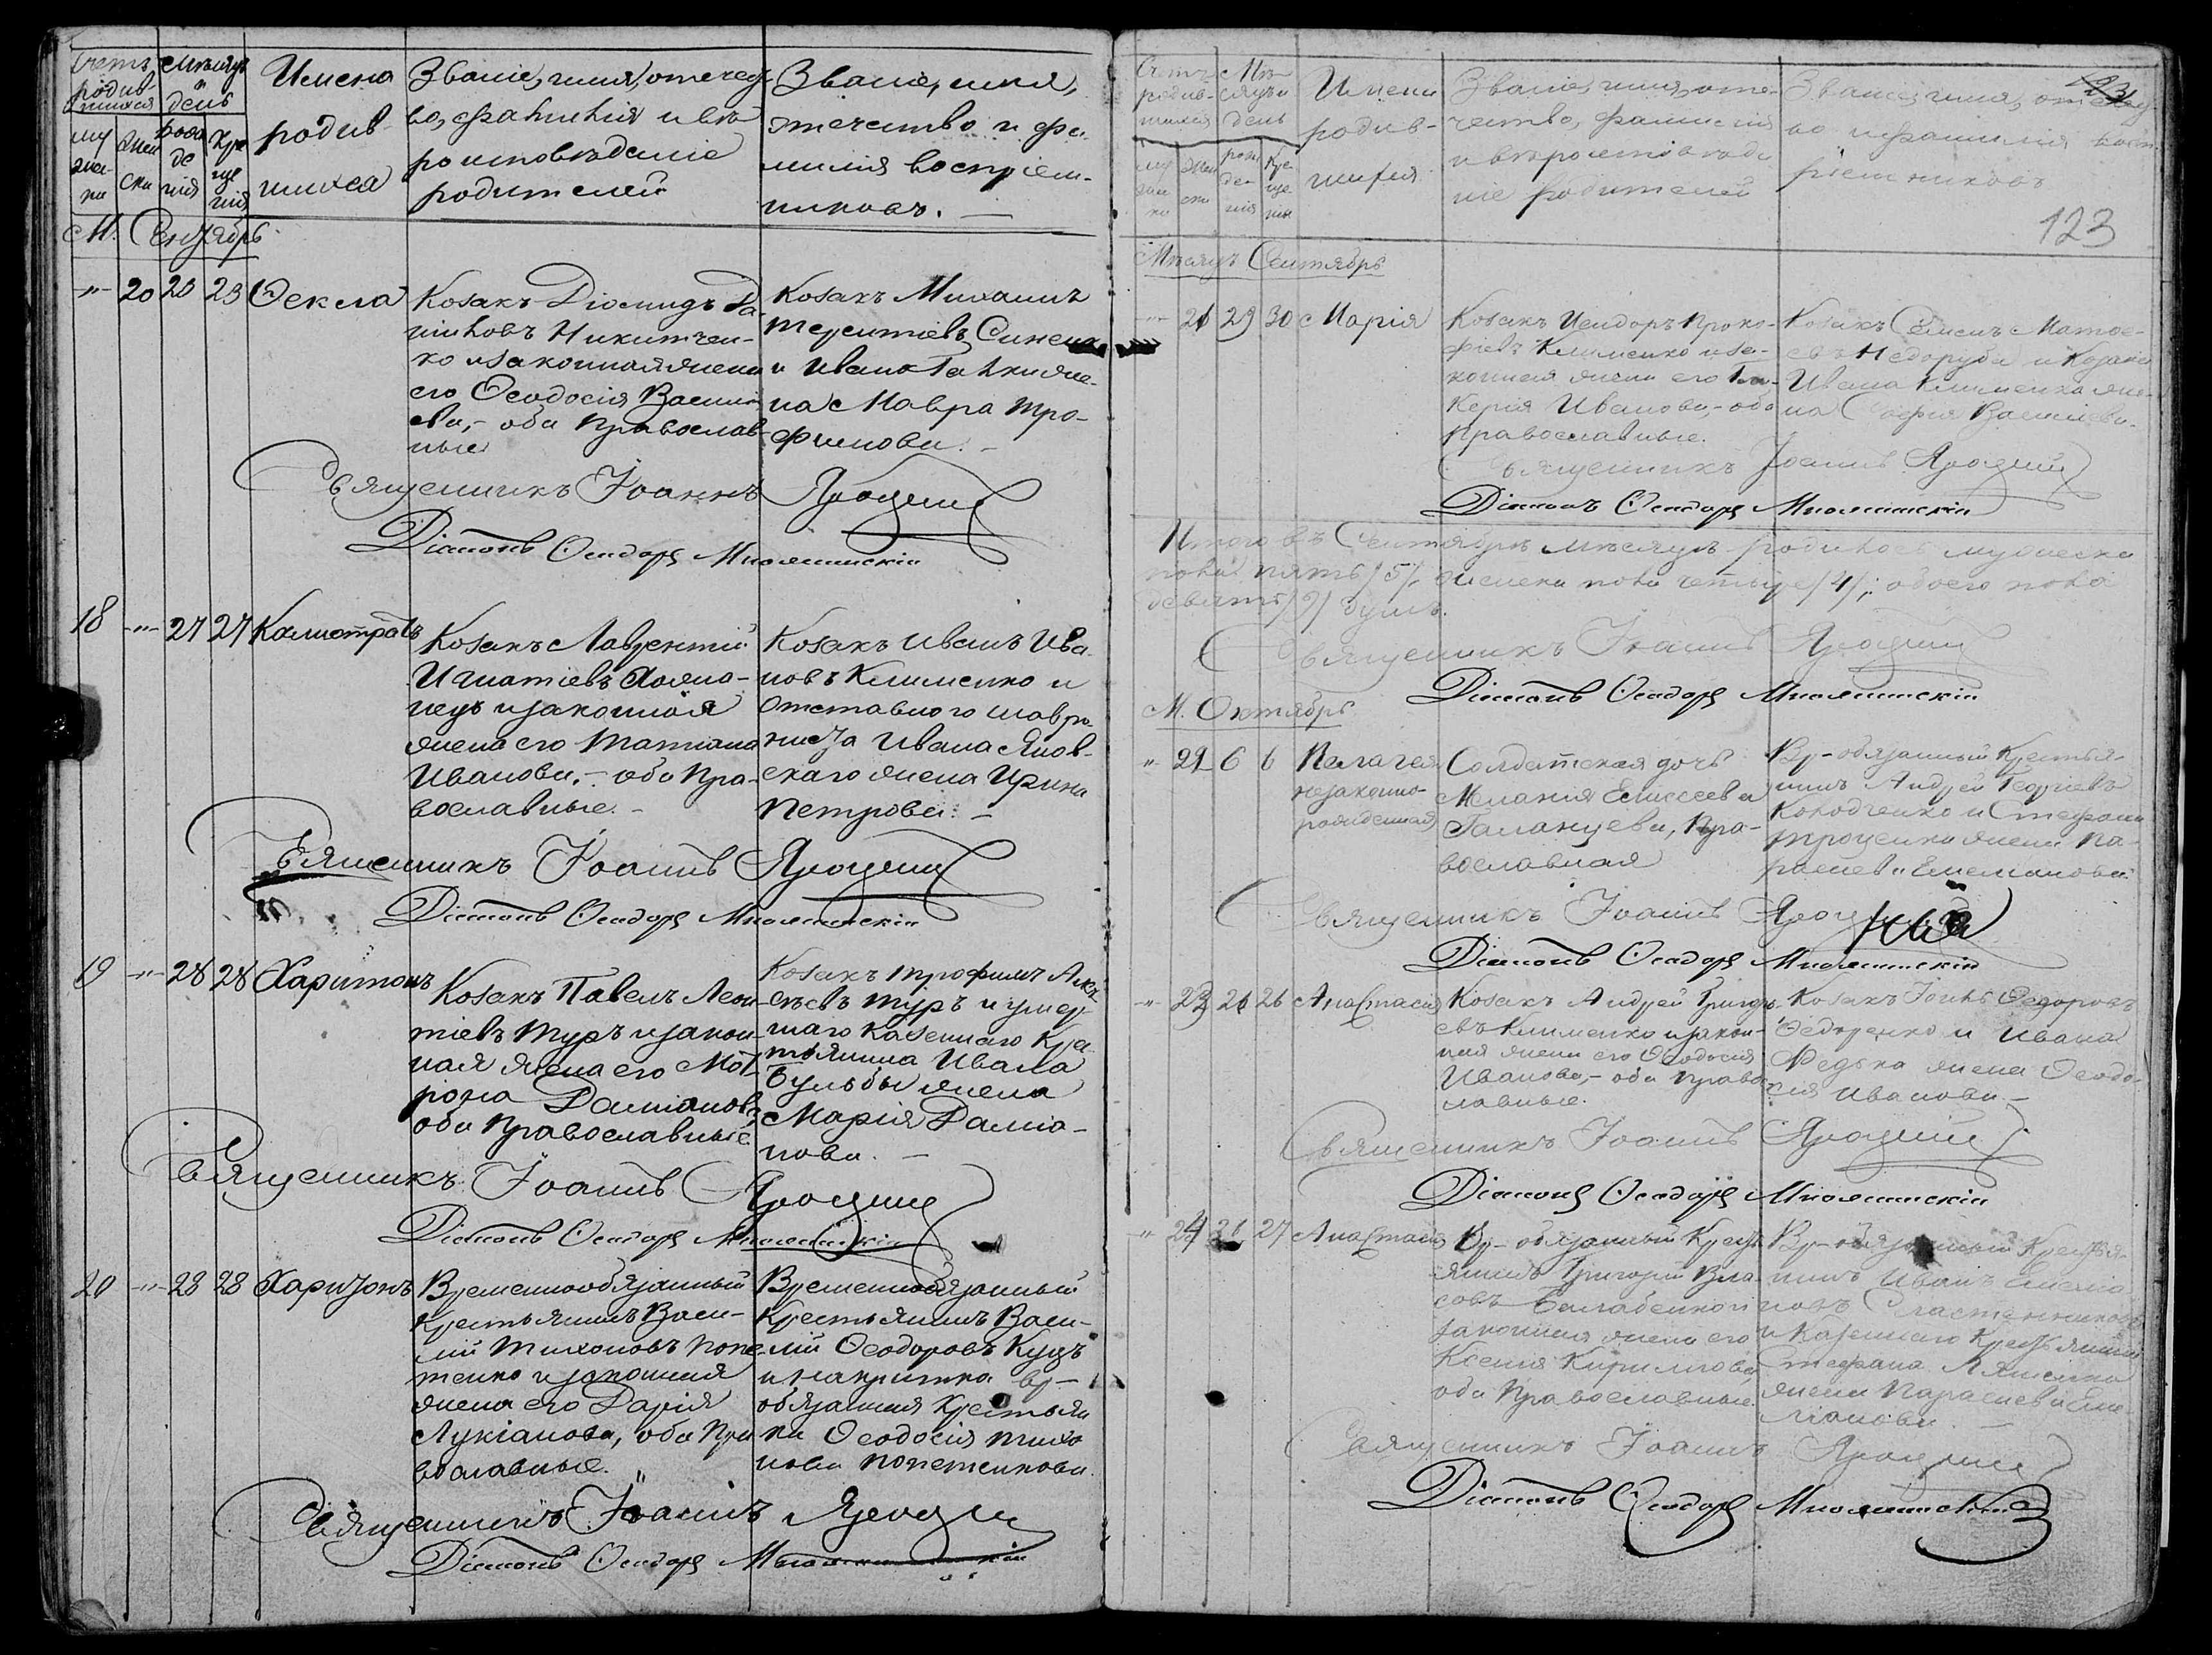 Счетъ родив-
шихся
Мѣсяцъ
и
день
Имена
родив
шихся
Званіе, имя, отечест
во, фамилія и вѣ
роисповѣданіе
родителей
Званіе, имя,
отечество и фа
милія воспріем-
никовъ. —
му
жес
ка
жен
ска
рож
де
нія
кре
ще
нія
М. Сентябрь
-"- 20 23 23 Ѳекла
Козакъ Діомидъ Да
ниловъ Никитчен-
ко и законная жена
его Ѳеодосія Васили
ева, - оба православ-
ные
Козакъ Михаилъ
Терентіевъ
и Ивана Галки же-
на Мавра Тро-
фимова. —
Священникъ Іоаннъ Яроцкій
Діаконъ Ѳеодоръ
18 -"- 27 27 Калистратъ
Козакъ Лаврентій
Игнатіевъ
и законная
жена его Татіана
Иванова, - оба пра-
вославные. -
Козакъ Иванъ Ива
новъ Клименко и
отставного
Ивана Янов-
скаго жена Ирина
Петрова. —
Священникъ Іоаннъ Яроцкій
Діаконъ Ѳеодоръ
19 -"- 28 28 Харитонъ
Козакъ Павелъ Леон
тіевъ Туръ и закон
ная жена его Мот
рона Даміанова
оба православные
Козакъ Трофимъ Алек
сѣевъ Туръ и умер
шаго казеннаго кре
стьянина Ивана
Бульбы жена
Марія Даміа-
нова. —
Священникъ Іоаннъ Яроцкій
Діаконъ Ѳеодоръ
20 -"- 28 28 Харитонъ
Временнообязанный
крестьянинъ Васи-
лій Тихоновъ
и законная
жена его Дарія
Лукіанова, оба пра
вославные.
Временнообязанный
крестьянинъ Васи-
лій Ѳеодоровъ Куцъ
вр-
обязанная крестьян
ка Ѳеодосія Тихо
нова
Священникъ Іоаннъ
Діаконъ Ѳеодоръ
Счетъ
родив-
шихся
Мѣ-
сяцъ и
день
Имена
родив-
шихся
Званіе, имя, оте-
чество, фамилія
и вѣроисповѣда
ніе родителей
Званіе, имя, отечест
во и фамилія восп
ріемниковъ
123
му
жес
ка
жен
ска
рож
де-
нія
кре-
ще
нія
Мѣсяцъ Сентябрь
-"- 21 29 30 Марія
Козакъ Исидоръ Проко-
фіевъ Клименко и за-
конная жена его Гли-
керія Иванова, - оба
православные.
Козакъ Семенъ Матѳе-
евъ Недоруба и козака
Ивана Клименка же-
на Софія Василіева.
Священникъ Іоаннъ Яроцкій
Діаконъ Ѳеодоръ
Итого въ Сентябрѣ мѣсяцѣ родилось мужеска
пола пять /5/, женска пола четыре /4/; обоего пола
девять /9/ душъ.
Священникъ Іоаннъ Яроцкій
Діаконъ Ѳеодоръ
М. Октябрь
" 22 6 6 Пелагея
незаконно-
рожденная
Солдатская дочь
Меланія Елисеева
Галанцева, пра-
вославная
Вр-обязанный крестья-
нинъ Андрей Георгіевъ
Колодченко и Стефана
Троценка жена Па-
раскева Емеліанова.
Священникъ Іоаннъ
Діаконъ Ѳеодоръ
-"- 23 26 26 Анастасія
Козакъ Андрей Григорь
евъ Клименко и закон-
ная жена его Ѳеодосія
Иванова, - оба правос
лавные.
Козакъ Ѳедоровъ
Ѳедоренко и Ивана
Редька жена Ѳеодо-
сія Иванова. —
Священникъ Іоаннъ Яроцкій
Діаконъ Ѳеодоръ
" 24 26 27 Анастасія
Вр-обязанный крест
янинъ Григорій Вла
совъ
законная жена его
Ксенія Кириллова
оба православные.
Вр-обязанный крестья-
нинъ Иванъ Емелія
новъ
и казеннаго крестьянина
Стефана Ляшенка
жена Параскева Еме-
ліанова. —
Священникъ Іоаннъ Яроцкій
Діаконъ Ѳеодоръ